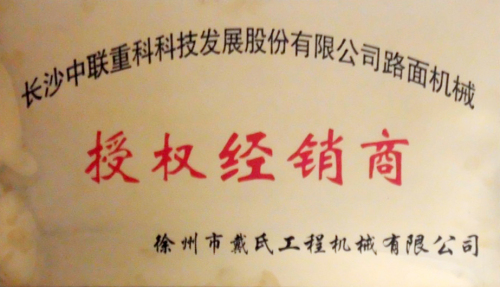 长沙中联重科科技发展股份有限公司路面机械
授权经销商
徐州市戴氏工程机械有限公司